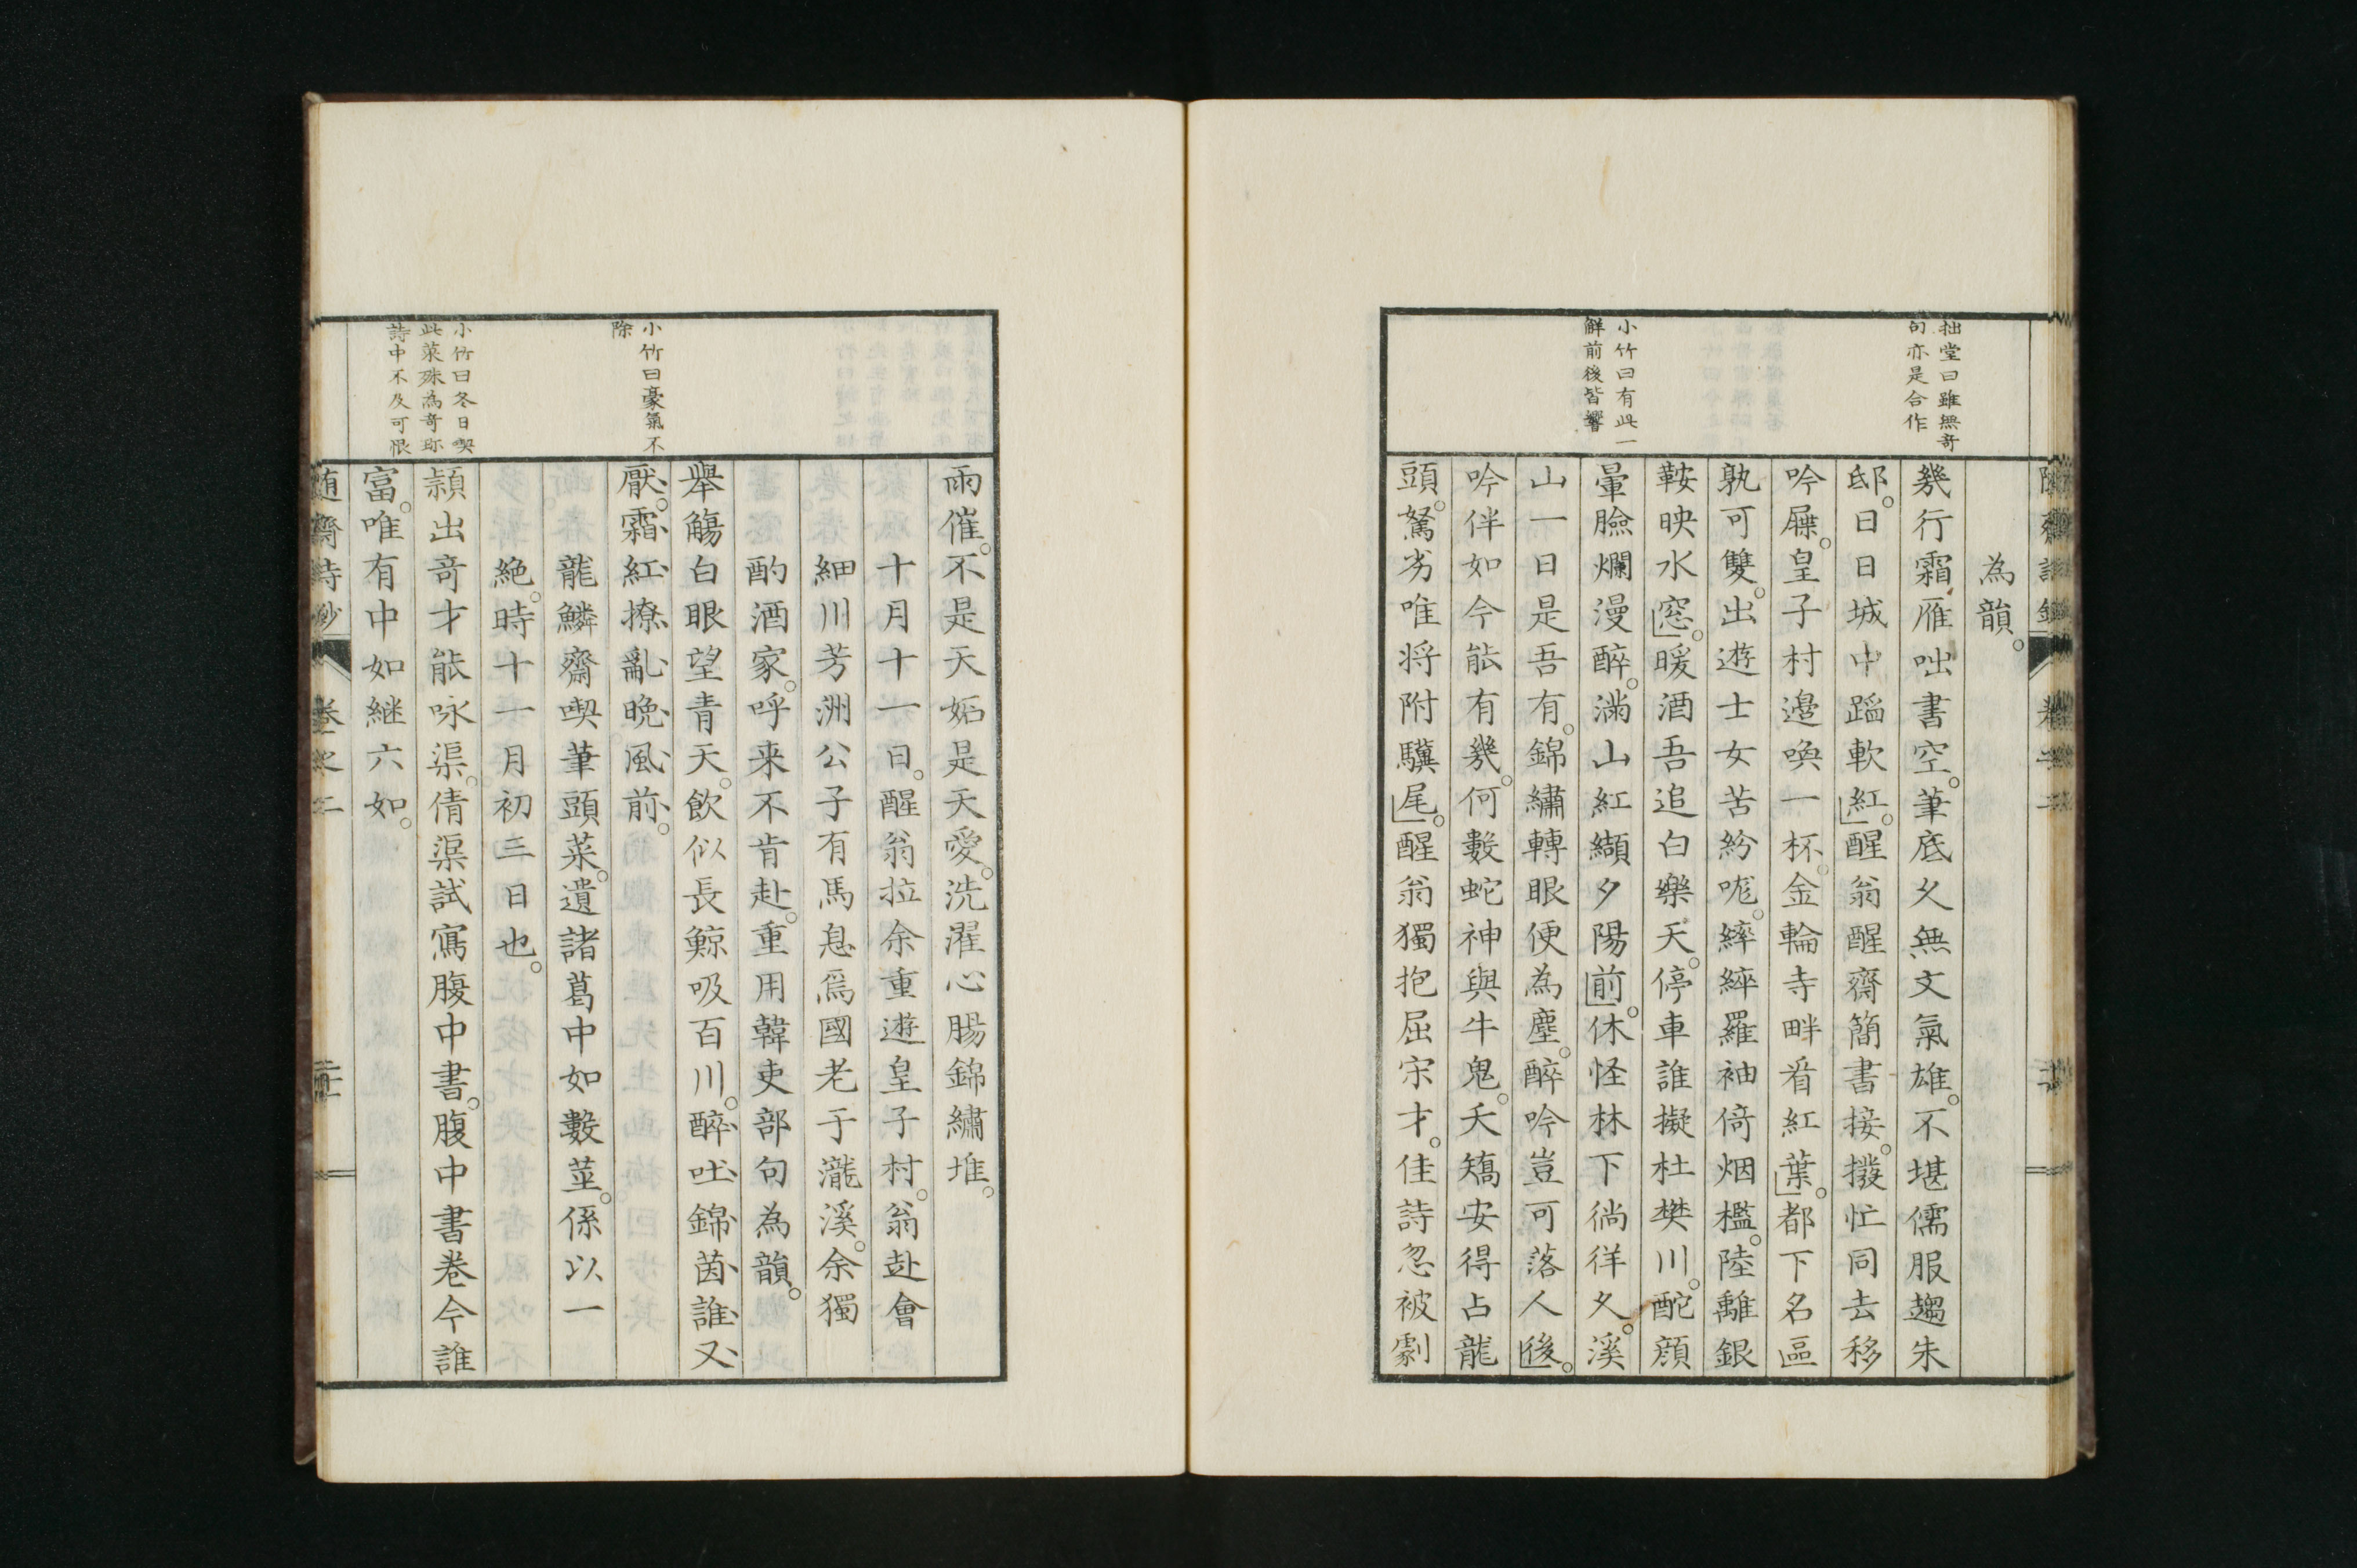 拙堂曰雖無奇
句亦是合作
小竹曰有此一
解前後皆響
為韻。
幾行霜雁咄書空。筆底久無文氣雄。不堪儒服趨朱
邸。日日城中蹈軟紅。醒翁醒齋簡書接。撥忙同去移
吟屧。皇子村邊喚一杯。金輪寺畔看紅葉。都下名區
孰可雙。出遊士女苦紛咙。綷綷羅袖倚烟檻。陸離銀
鞍映水窓。暖酒吾追白樂天。停車誰擬杜樊川。酡顔
暈臉爛漫醉。滿山紅纈夕陽前。休怪林下徜徉久。溪
山一日是吾有。錦繡轉眼便為塵。醉吟豈可落人後。
吟伴如今能有幾。何數蛇神與牛鬼。夭矯安得占龍
頭。駑劣唯将附驥尾。醒翁獨抱屈宋才。佳詩忽被劇
小竹曰豪氣不
除
小竹曰冬日喫
此菜殊為奇珎
詩中不及可恨
雨催。不是天妬是天愛。洗濯心腸錦繡堆。
十月十一日。醒翁拉余重遊皇子村。翁赴會
細川芳洲公子有馬息焉國老于瀧溪。余獨
酌酒家。呼来不肯赴。重用韓吏部句為韻。
舉觴白眼望青天。飲似長鯨吸百川。醉吐錦茵誰又
厭。霜紅撩亂晩風前。
龍鱗齋喫筆頭菜。遺諸葛中如數莖。係以一
絶。時十一月初三日也。
頴出奇才能咏渠。倩渠試寫腹中書。腹中書卷今誰
富。唯有中如継六如。
随齋詩鈔 卷之二